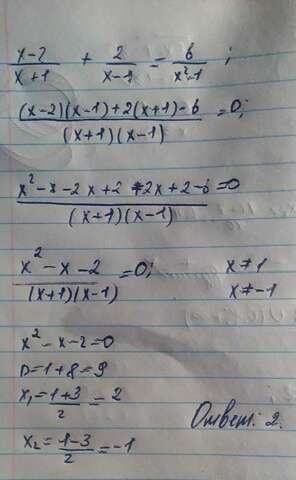 (x-2)/(x+1) + 2/(x-1) = 6/(x²-1) ;
((x-2)(x-1)+2(x+1)-6)/((x+1)(x-1)) =0;
(x²-x-2x+2+2x+2-6)/((x+1)(x-1)) =0
(x²-x-2)/((x+1)(x-1)) =0; x≠1
x≠-1
x²-x-2=0
D=1+8=9
x₁=(1+3)/2=2
Ответ: 2.
x₂=(1-3)/2=-1